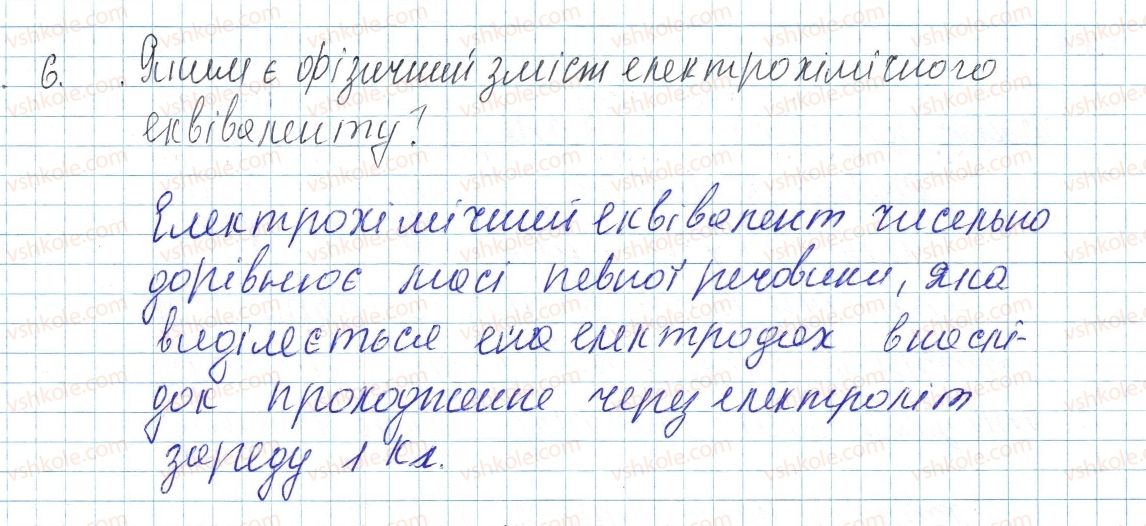 6. Яким є фізичний зміст електрохімічного
еквіваленту?
Електрохімічний еквівалент чисельно
дорівнює масі певної речовини, яка
виділяється на електродах внаслі-
док проходження через електроліт
заряду 1 Кл.